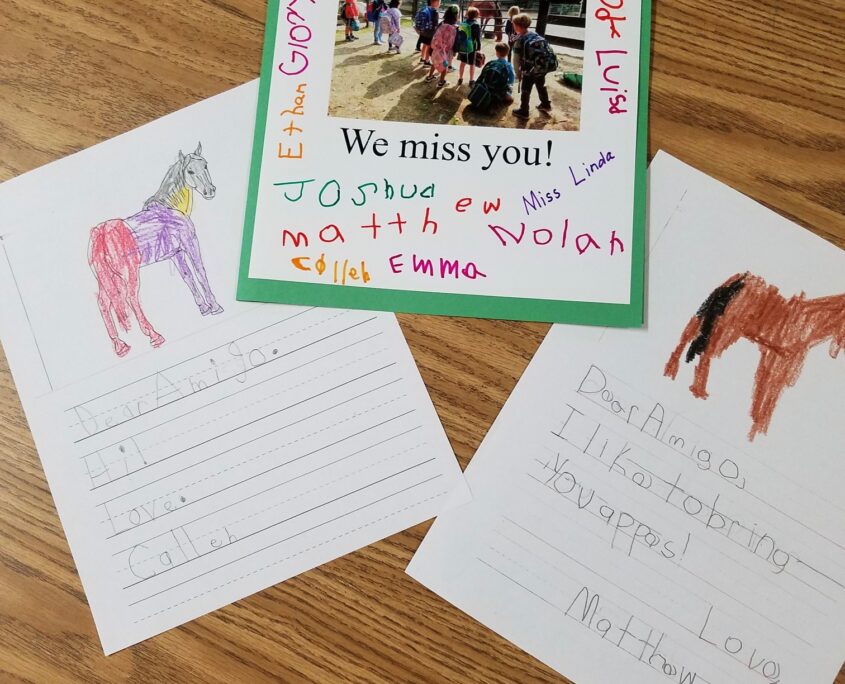 Ethan Glory
Luisa
We miss you!
Joshua
Miss Linda
matthew
Nolan
Calleh Emma
Dear Amigo.
Hi!
Love.
Calleh
Dear Amigo,
I like to bring
you appes!
Love,
Matthew